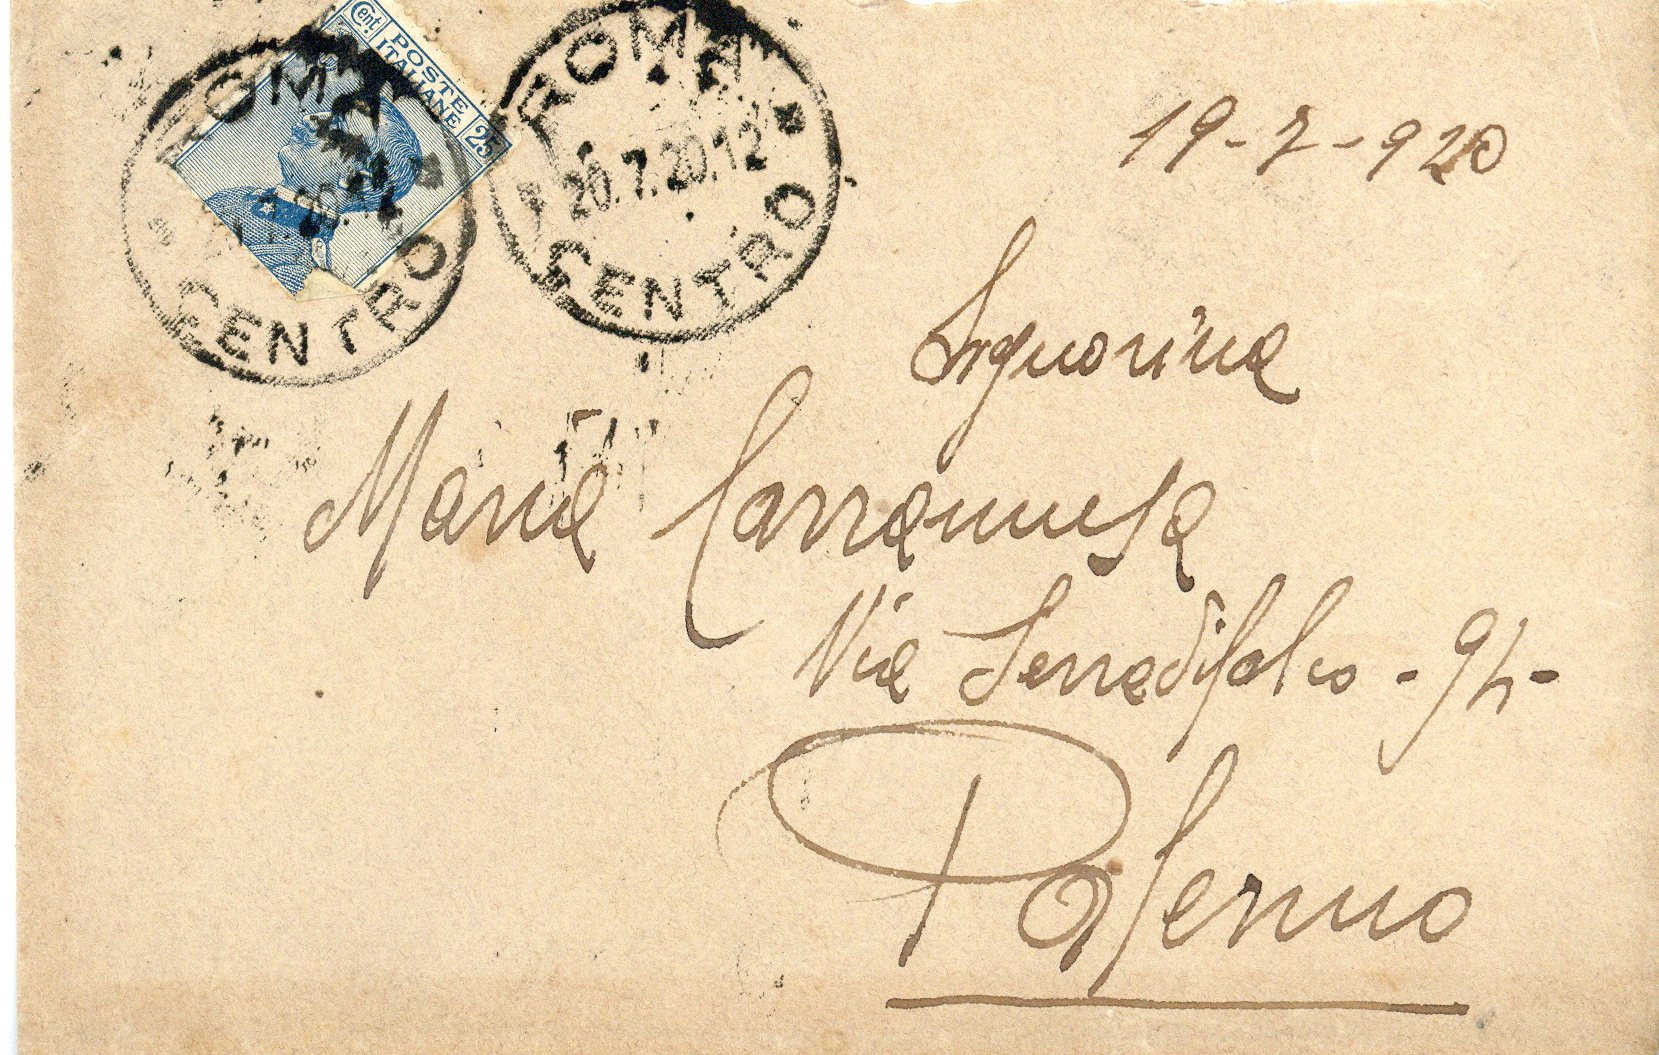 Cent. 25
POSTE
ITALIANE
ROMA
CENTRO
ROMA
20.7.20.12
CENTRO
19-7-920
Signorina
Maria Carramusa
Via Serradifalco - 94-
Palermo